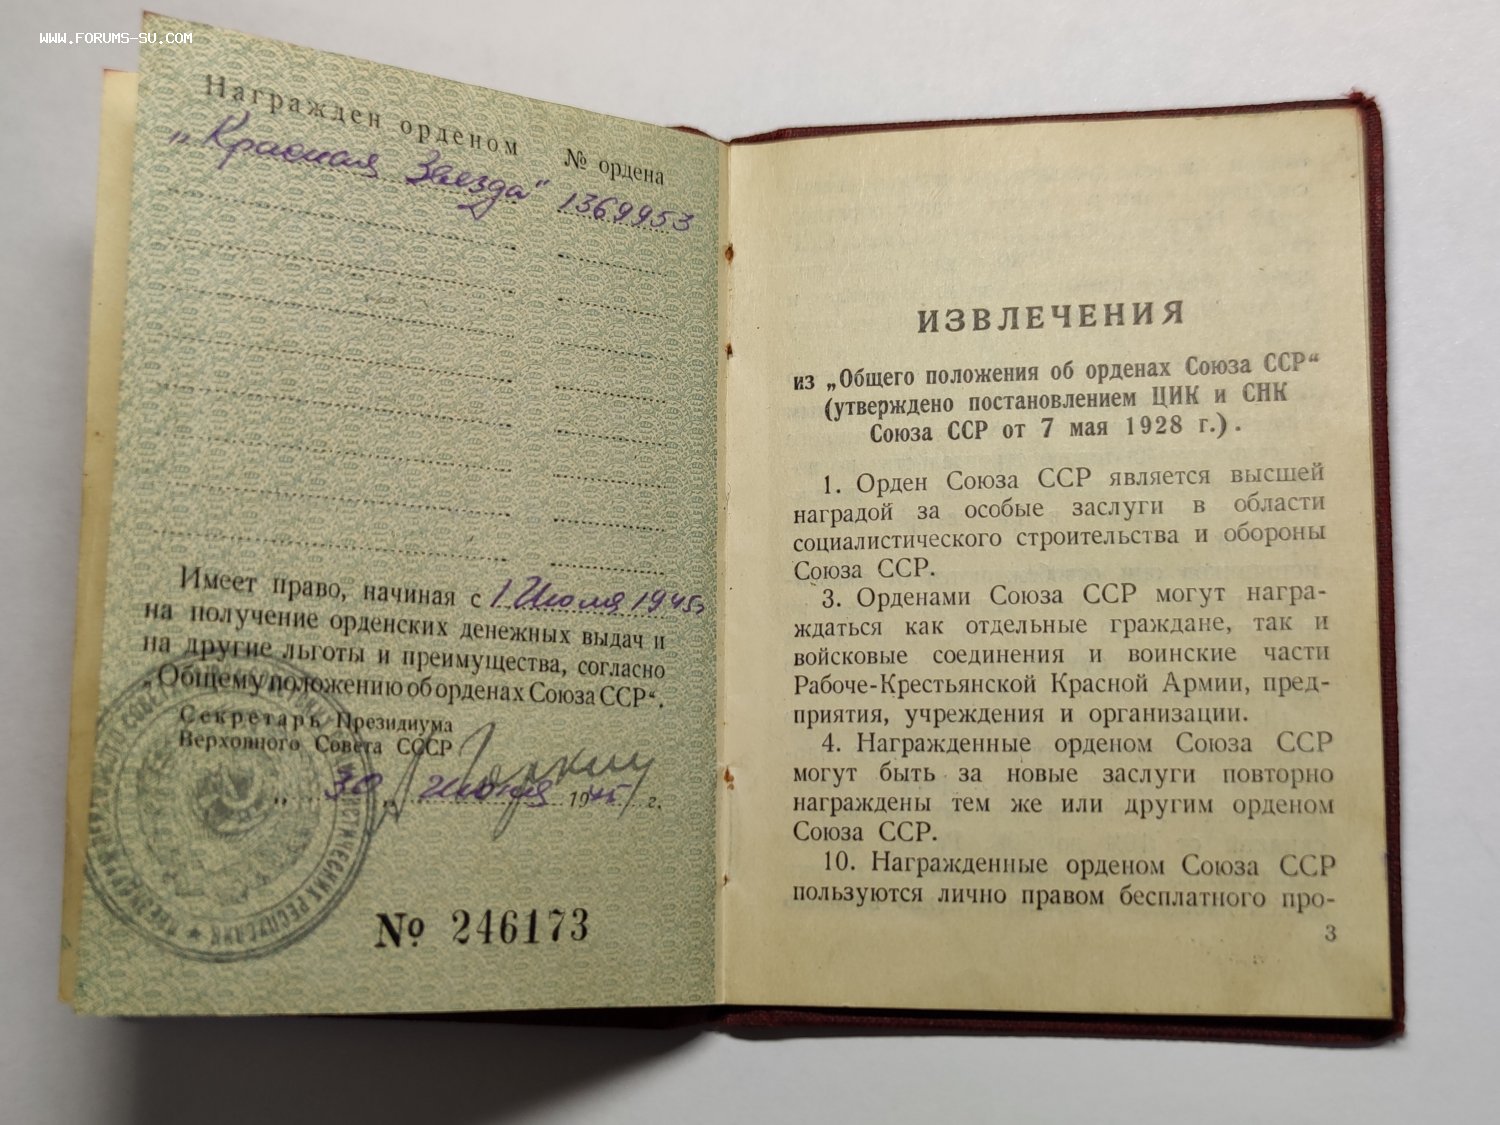 WWW.FORUMS-SU.COM
Награжден орденом
№ ордена
„Красная Звезда" 1369953
Имеет право, начиная с 1 Июля 1945
на получение орденских денежных выдач и
на другие льготы и преимущества, согласно
„Общему положению об орденах Союза ССР".
Секретарь Президиума
Верховного Совета СССР
„30„ июня 1945 г.
№ 246173
ИЗВЛЕЧЕНИЯ
из „Общего положения об орденах Союза ССР"
(утверждено постановлением ЦИК и СНК
Союза ССР от 7 мая 1928 г.).
1. Орден Союза ССР является высшей
наградой за особые заслуги в области
социалистического строительства и обороны
Союза ССР.
3. Орденами Союза ССР могут награ-
ждаться как отдельные граждане, так и
войсковые соединения и воинские части
Рабоче-Крестьянской Красной Армии, пред-
приятия, учреждения и организации.
4. Награжденные орденом Союза ССР
могут быть за новые заслуги повторно
награждены тем же или другим орденом
Союза ССР.
10. Награжденные орденом Союза ССР
пользуются лично правом бесплатного про-
3